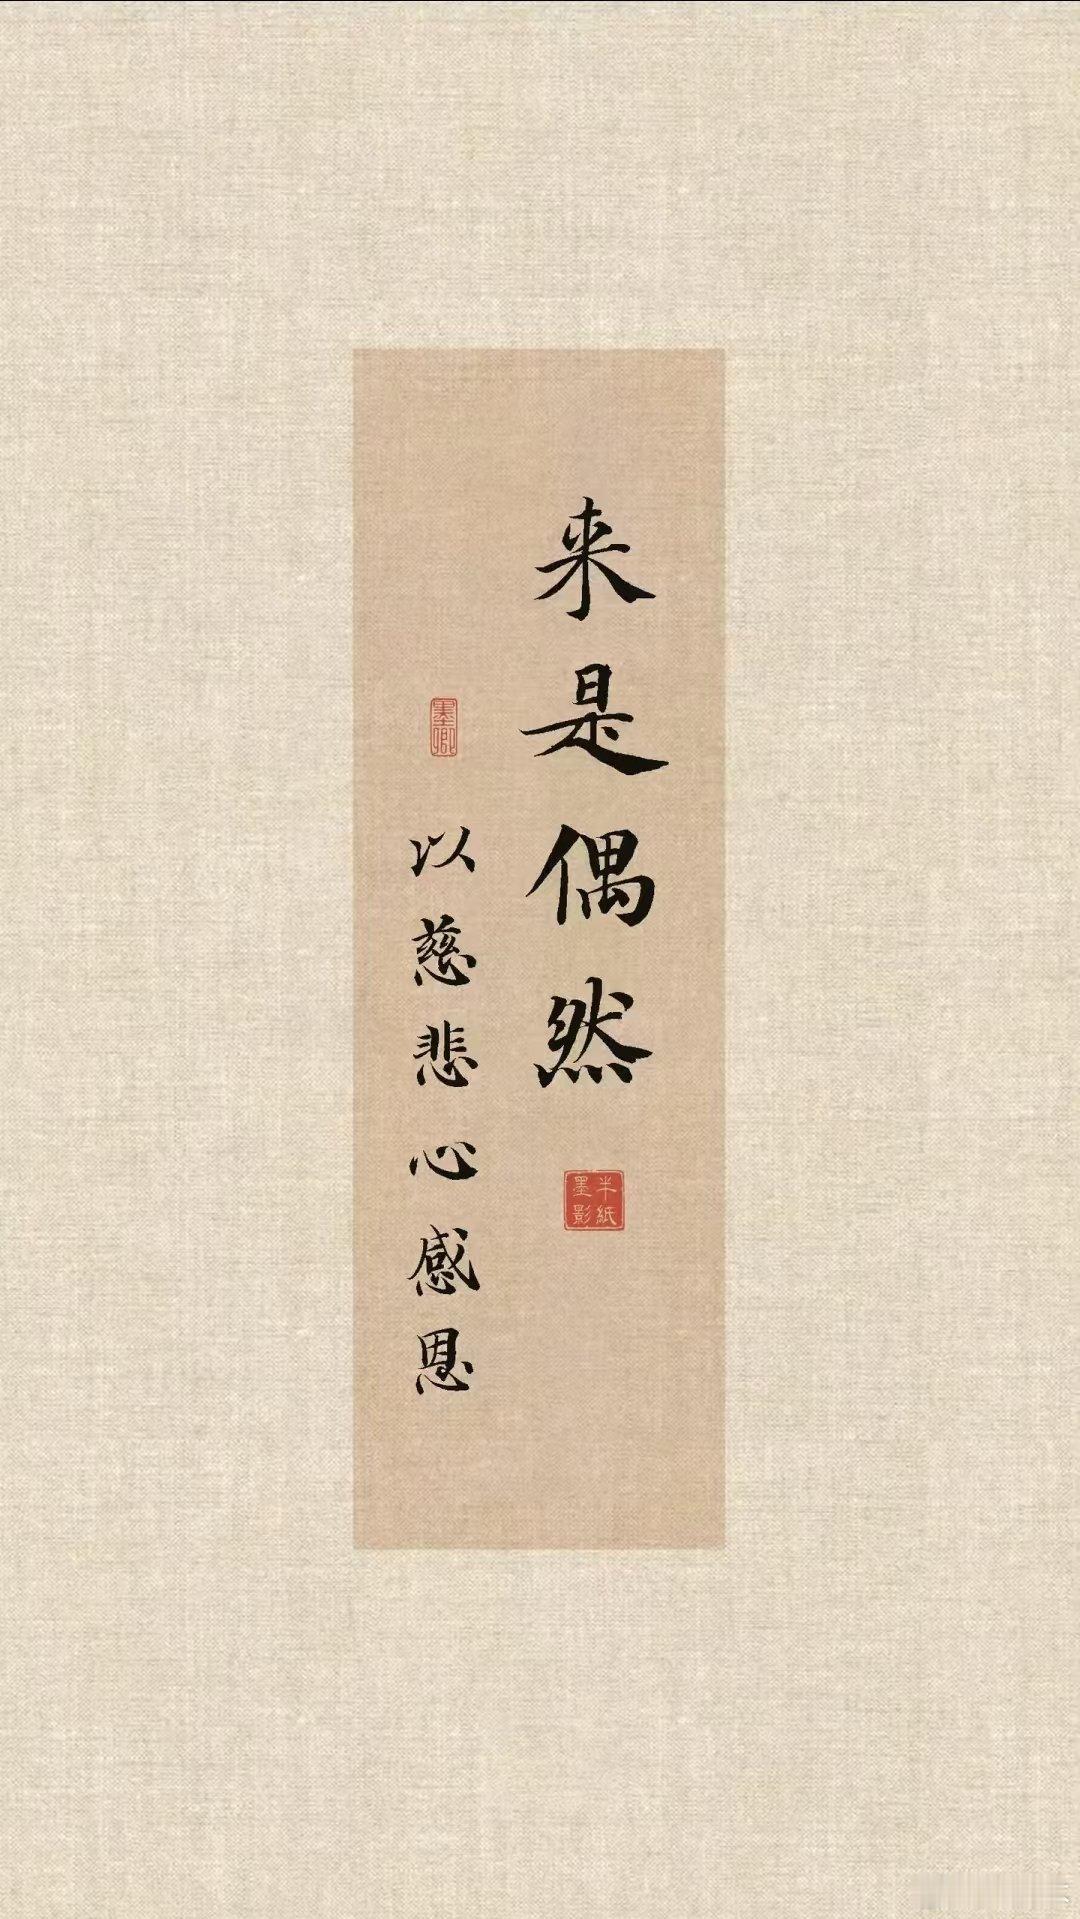 来是偶然
半紙
墨影
墨卿
以慈悲心感恩